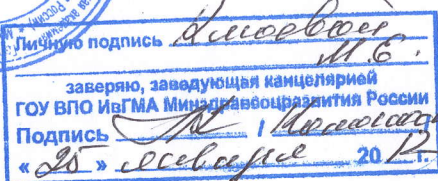 Личную подпись
М.Е.
заверяю, заведующая канцелярией
ГОУ ВПО ИвГМА Минздравсоцразвития России
Подпись /
« 25 » января 20 12 г.